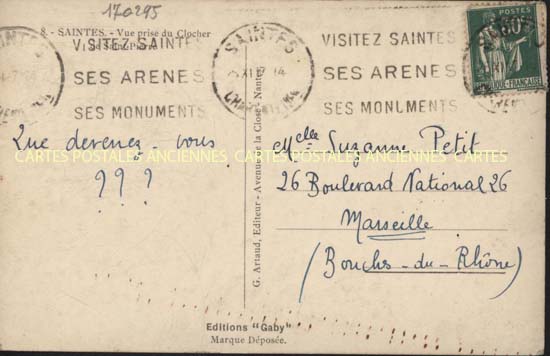 170295
8. - SAINTES. - Vue prise du Clocher
SAINTES
VISITEZ SAINTES
SES ARENES
SES MONUMENTS
SAINTES
VISITEZ SAINTES
SES ARENES
SES MONUMENTS
POSTES
Que devenez-vous
???
Melle Suzanne Petit
26 Boulevard National 26
Marseille
(Bouches-du-Rhône)
CARTES POSTALES ANCIENNES CARTES POSTALES ANCIENNES CARTES
G. Artaud, Editeur - Avenue de la Close - Nantes
Editions "Gaby"
Marque Déposée.